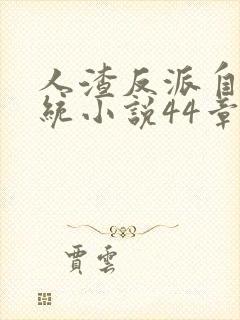 人渣反派自
統小說44章
賈雲